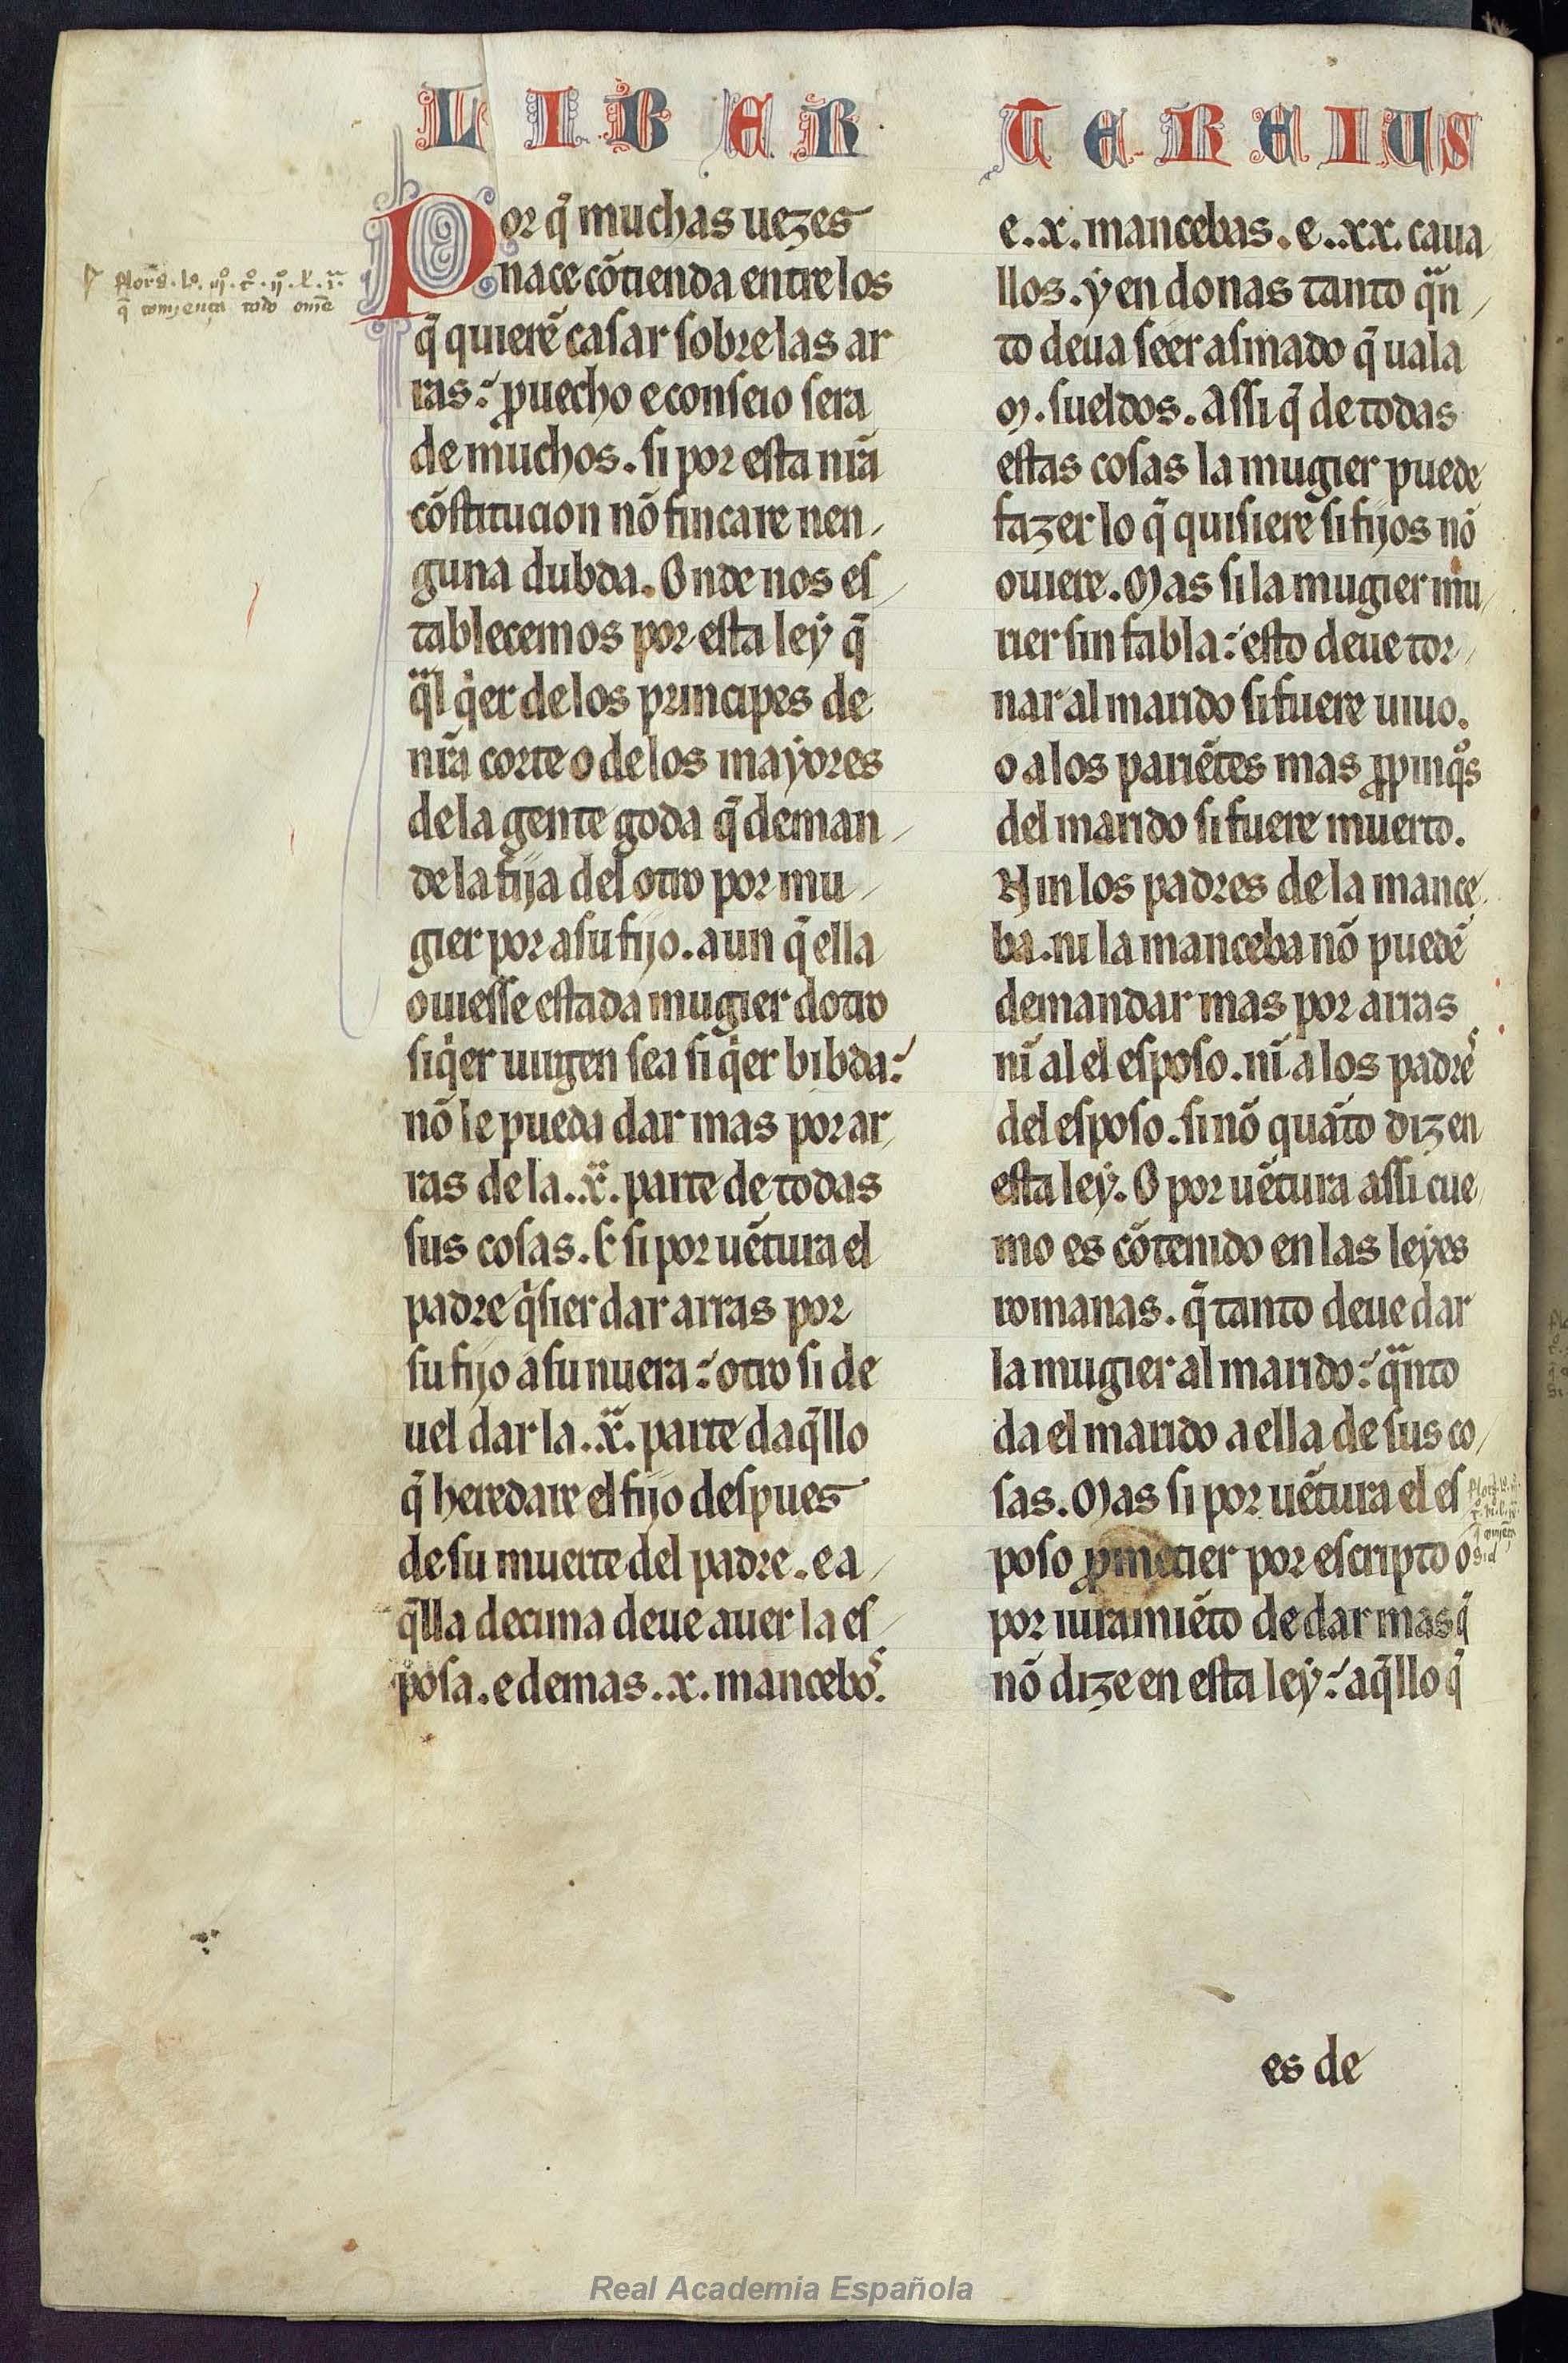 LIBER TERCIUS
Por q̄ muchas uezes
nace cõtienda entre los
q̄ quierẽ casar sobre las ar
ras: ꝓuecho e conseio sera
de muchos. si por esta nr̃a
cõstitucion nõ fincare nen
guna dubda. Onde nos es
tablecemos por esta leẏ q̄
q̃l q̇er de los principes de
nr̃a corte o de los mayores
de la gente goda q̄ deman
de la fija del otro por mu
gier por a su fijo. aun q̄ ella
ouiesse estada mugier dotro
siq̇er uirgen sea siq̇er bibda:
nõ le pueda dar mas por ar
ras de la .xª. parte de todas
sus cosas. E si por uẽtura el
padre q̇sier dar arras por
su fijo a su nuera: otro si de
uel dar la .xª. parte daq̄llo
q̄ heredare el fijo despues
de su muerte del padre. e a
q̄lla decima deue auer la es
posa. e demas .x. mancebos.
e .x. mancebas. e .xx. caua
llos. ẏ en donas tanto qªn
to deua seer asmado q̄ uala
M. sueldos. Assi q̄ de todas
estas cosas la mugier puede
fazer lo q̄ quisiere si fijos nõ
ouiere. Mas si la mugier mu
rier sin fabla: esto deue tor
nar al marido si fuere uiuo.
o a los pariẽtes mas ꝓpinq̊s
del marido si fuere muerto.
Nin los padres de la mance
ba. ni la manceba nõ puedẽ
demandar mas por arras
nĩ al el esposo. nĩ a los padres
del esposo. si nõ quãto diz en
esta leẏ. O por uẽtura assi cue
mo es cõtenido en las leyes
romanas. q̄ tanto deue dar
la mugier al marido: qªnto
da el marido a ella de sus co
sas. Mas si por uẽtura el es
poso ꝓmetier por escripto o
por iuramiẽto de dar mas q̄
nõ dize en esta leẏ: aq̄llo q̄
es de
Real Academia Española